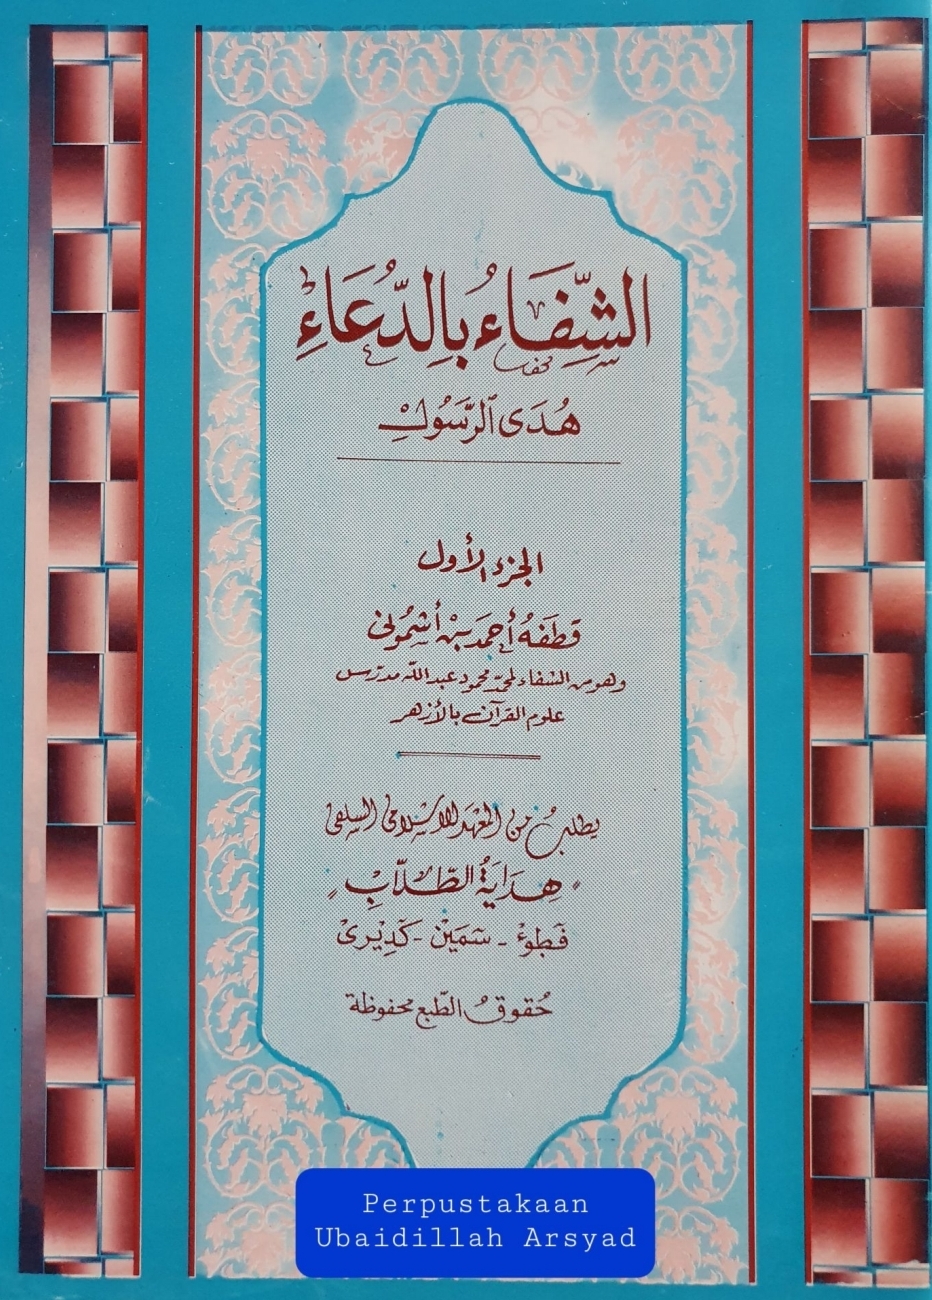 الشِّفَاءُ بِالدُّعَاءِ
هُدَى الرَّسُولِ
الجزء الأول
قطفهُ أحمد بن أشمُوني
وهو من الشفاء لمحمّد محمود عبد اللّه مدرّس
علوم القرآن بالأزهر
يطلبُ من المعهد الإسلامي السلفي
"هِدَايَةُ الطُّلَّابِ"
فَطِوءْ - سَمَيْن - كَدِيْرِيْ
حُقوقُ الطّبع محفوظة
Perpustakaan
Ubaidillah Arsyad